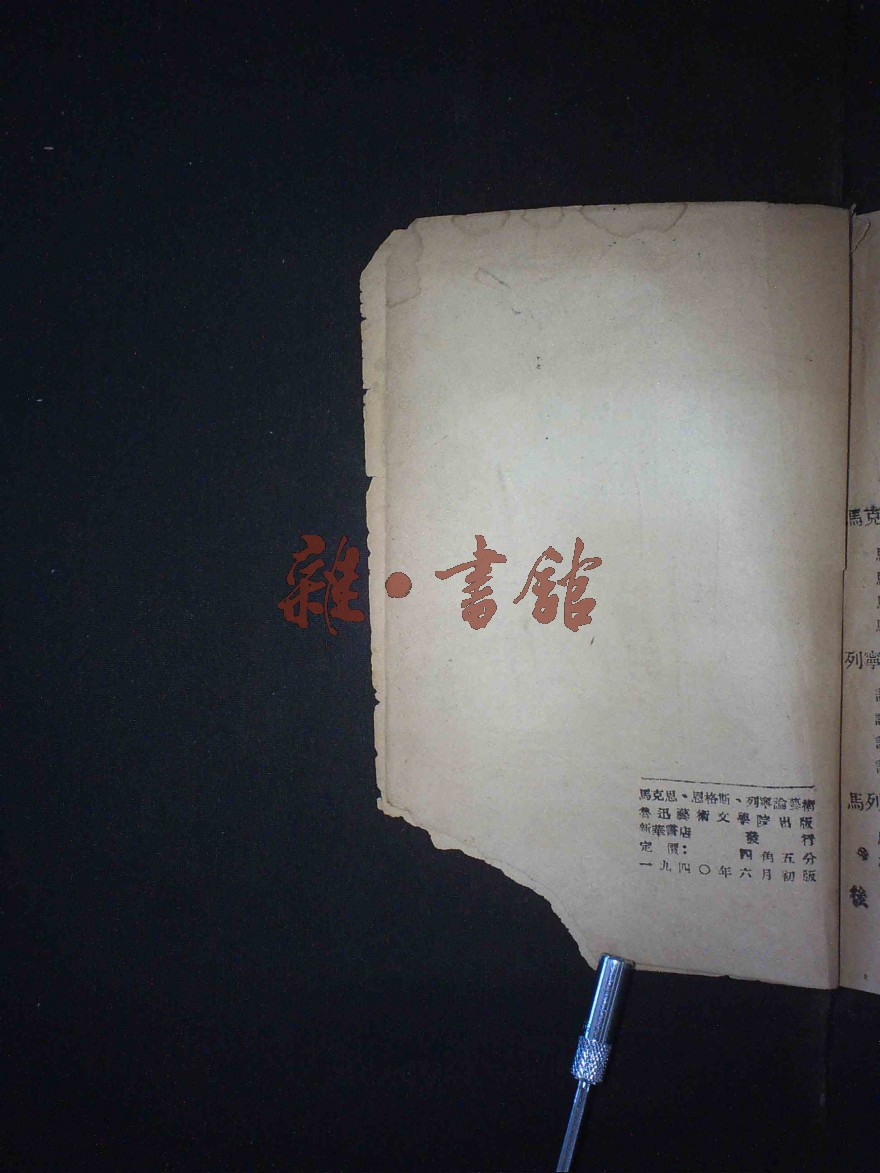 雜·書館
馬克思、恩格斯、列寧論藝術
魯迅藝術文學院出版
新華書店 發行
定價： 四角五分
一九四〇年六月初版
馬克
列寧
馬列
後